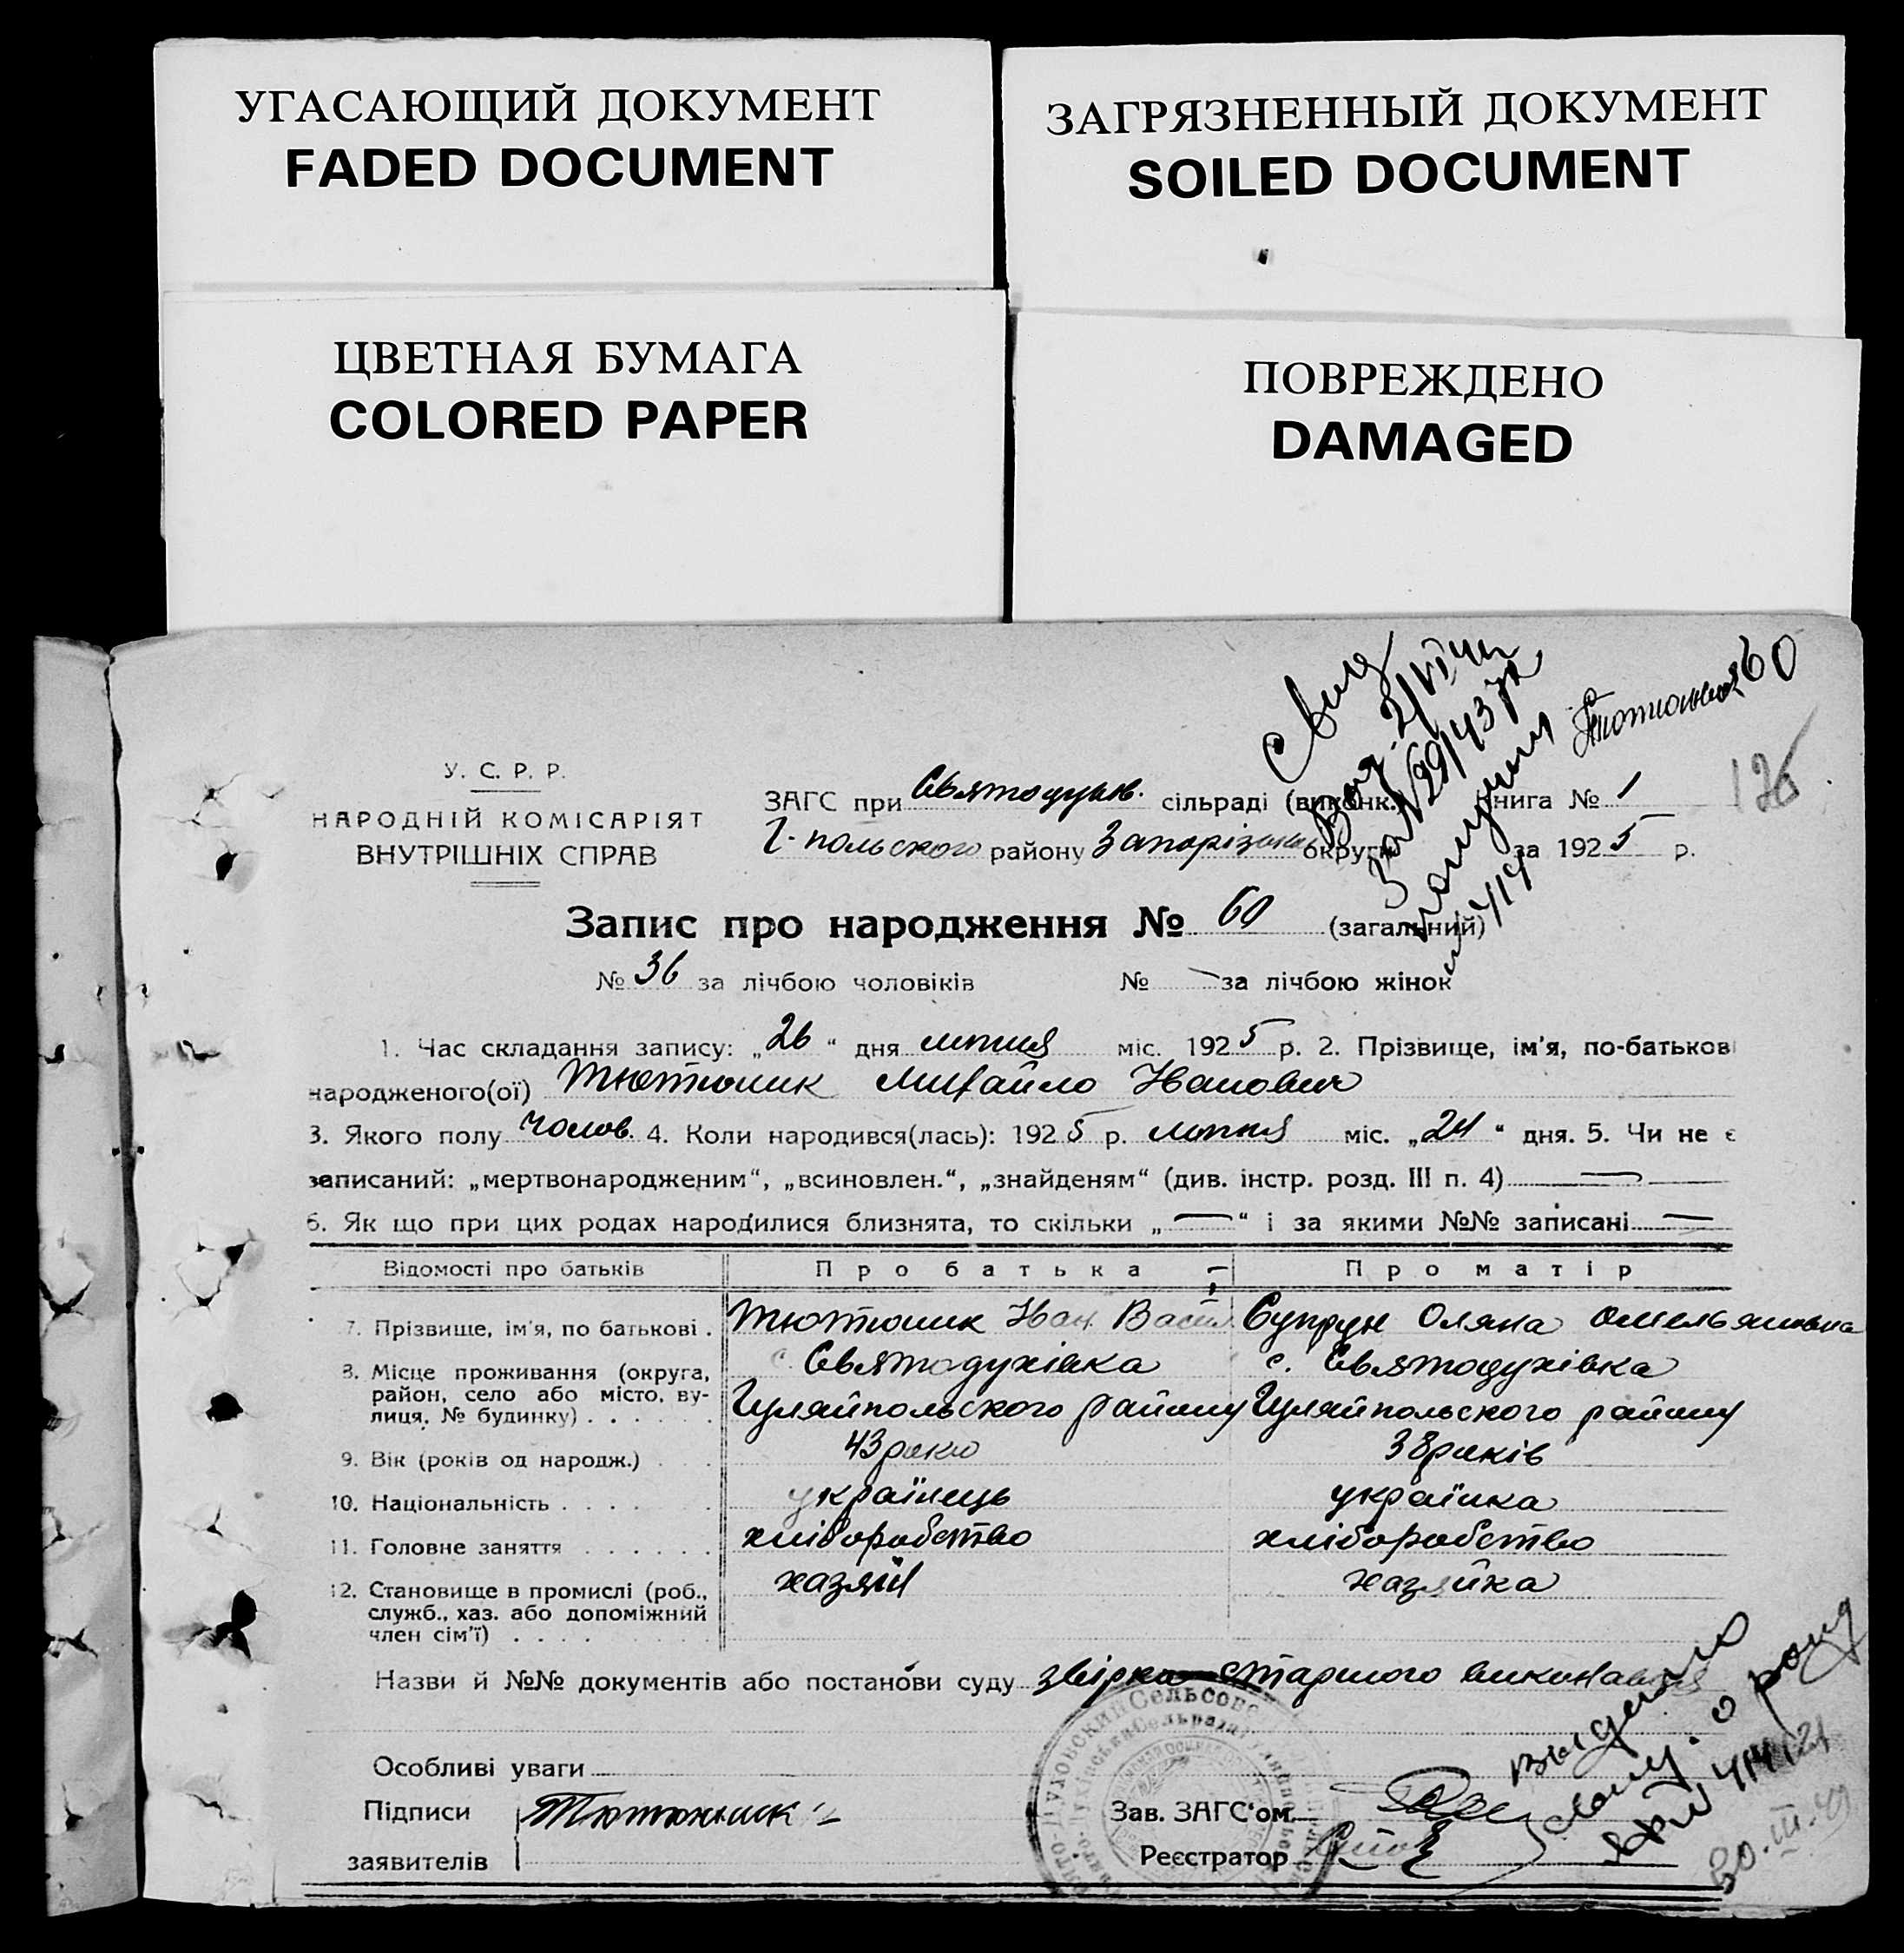 УГАСАЮЩИЙ ДОКУМЕНТ
FADED DOCUMENT
ЗАГРЯЗНЕННЫЙ ДОКУМЕНТ
SOILED DOCUMENT
ЦВЕТНАЯ БУМАГА
COLORED PAPER
ПОВРЕЖДЕНО
DAMAGED
60
126
У. С. Р. Р.
НАРОДНІЙ КОМІСАРІЯТ
ВНУТРІШНІХ СПРАВ
ЗАГС при Святодухів. сільраді (виконк.) Книга № 1
Г-польского району Запорізької округи за 1925 р.
Запис про народження № 60 (загальний)
№ 36 за лічбою чоловіків № за лічбою жінок
1. Час складання запису: „26“ дня липня міс. 1925 р. 2. Прізвище, ім'я, по-батькові
народженого(ої) Тютюник Михайло Іванович
3. Якого полу чолов. 4. Коли народився(лась): 1925 р. липня міс. „24“ дня. 5. Чи не є
записаний: „мертвонародженим“, „всиновлен.“, „знайденям“ (див. інстр. розд. III п. 4) —
6. Як що при цих родах народилися близнята, то скільки „—“ і за якими №№ записані —
Відомості про батьків Про батька Про матір
7. Прізвище, ім'я, по батькові . Тютюник Іван Васил Супрун Оляна Омельяновна
8. Місце проживання (округа, район, село або місто, вулиця, № будинку) . . . . . .
с. Святодухівка с. Святодухівка
Гуляйпольского району Гуляйпольского району
9. Вік (років од народж.) . . . 43 роки 38 років
10. Національність . . . . . українець українка
11. Головне заняття . . . . . . хліборобство хліборобство
12. Становище в промислі (роб., служб., хаз. або допоміжний член сім'ї) . . . .
хазяїн хазяйка
Назви й №№ документів або постанови суду звірка старшого виконавця
Особливі уваги
Підписи Тютюник Зав. ЗАГС'ом
заявителів Реєстратор
выдано
30.III.49